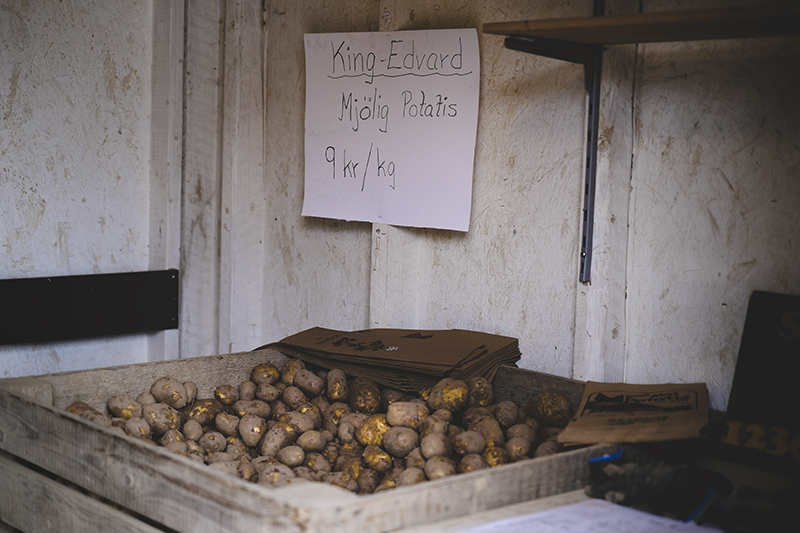 King-Edvard
Mjölig Potatis
9 kr/kg